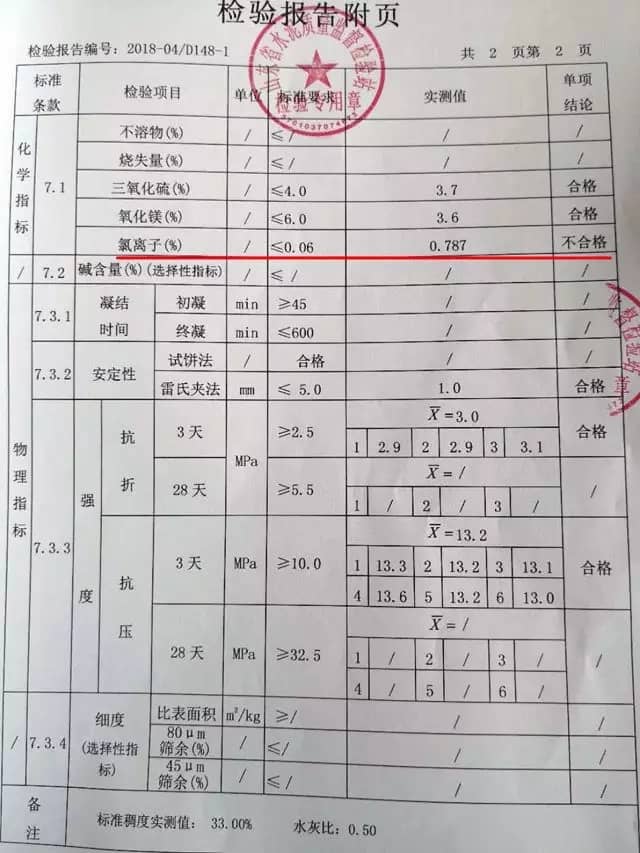 检验报告附页
检验报告编号: 2018-04/D148-1 共 2 页第 2 页
山东省水泥质量监督检验站
检验专用章
标准条款 检验项目 单位 标准要求 实测值 单项结论
化学指标 7.1 不溶物(%) / ≤/ / /
烧失量(%) / ≤/ / /
三氧化硫(%) / ≤4.0 3.7 合格
氧化镁(%) / ≤6.0 3.6 合格
氯离子(%) / ≤0.06 0.787 不合格
/ 7.2 碱含量(%)(选择性指标) / ≤ / / /
物理指标 7.3.1 凝结时间 初凝 min ≥45 / /
终凝 min ≤600 / /
7.3.2 安定性 试饼法 / 合格 / /
雷氏夹法 mm ≤ 5.0 1.0 合格
7.3.3 强度 抗折 3 天 MPa ≥2.5 X̄=3.0 合格
1 2.9 2 2.9 3 3.1
28 天 ≥5.5 X̄= / /
1 / 2 / 3 /
抗压 3 天 MPa ≥10.0 X̄=13.2 合格
1 13.3 2 13.2 3 13.1
4 13.6 5 13.2 6 13.0
28 天 MPa ≥32.5 X̄= / /
1 / 2 / 3 /
4 / 5 / 6 /
/ 7.3.4 细度(选择性指标) 比表面积 m²/kg ≥/ / /
80μm筛余(%) / ≤/ / /
45μm筛余(%) / ≤/ / /
备注 标准稠度实测值: 33.00% 水灰比: 0.50